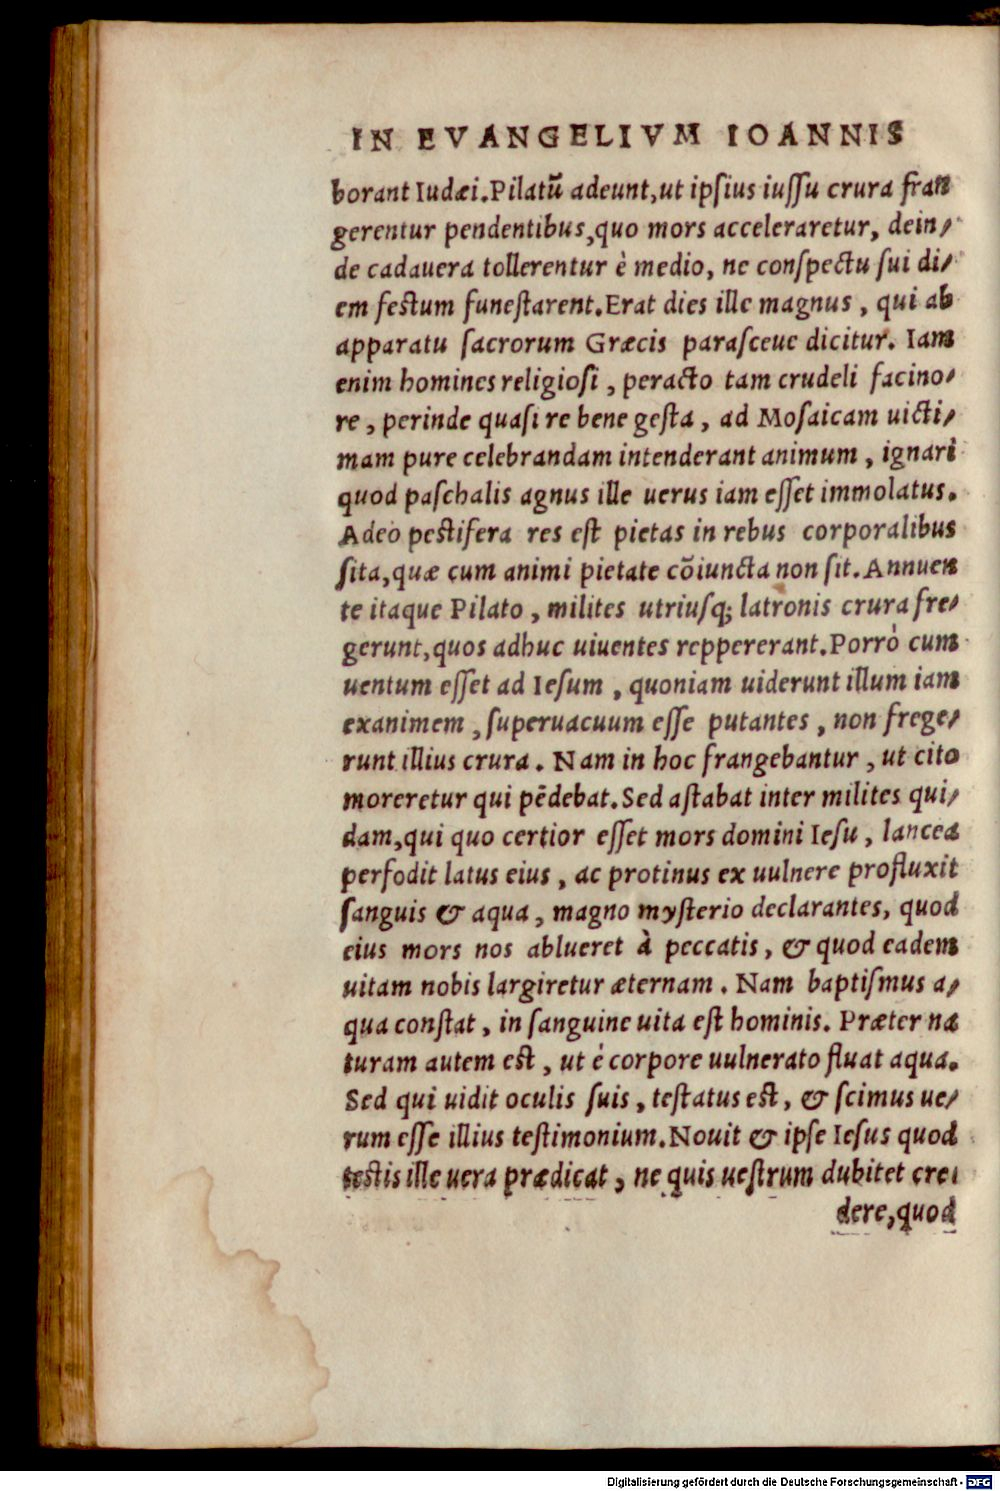 IN EVANGELIVM IOANNIS
borant Iudæi.Pilatū adeunt,ut ipſius iuſſu crura fran
gerentur pendentibus,quo mors acceleraretur, dein/
de cadauera tollerentur è medio, ne conſpectu ſui di/
em feſtum funeſtarent.Erat dies ille magnus , qui ab
apparatu ſacrorum Græcis paraſceue dicitur. Iam
enim homines religioſi , peracto tam crudeli facino/
re , perinde quaſi re bene geſta , ad Moſaicam uicti/
mam pure celebrandam intenderant animum , ignari
quod paſchalis agnus ille uerus iam eſſet immolatus.
Adeo peſtifera res eſt pietas in rebus corporalibus
ſita,quæ cum animi pietate cōiuncta non ſit.Annuen
te itaque Pilato , milites utriuſq; latronis crura fre/
gerunt,quos adhuc uiuentes reppererant.Porrò cum
uentum eſſet ad Ieſum , quoniam uiderunt illum iam
exanimem , ſuperuacuum eſſe putantes , non frege/
runt illius crura . Nam in hoc frangebantur , ut cito
moreretur qui pēdebat.Sed aſtabat inter milites qui/
dam,qui quo certior eſſet mors domini Ieſu , lancea
perfodit latus eius , ac protinus ex uulnere profluxit
ſanguis & aqua , magno myſterio declarantes, quod
eius mors nos ablueret à peccatis , & quod eadem
uitam nobis largiretur æternam . Nam baptiſmus a/
qua conſtat , in ſanguine uita eſt hominis. Præter na
turam autem eſt , ut è corpore uulnerato fluat aqua.
Sed qui uidit oculis ſuis , teſtatus eſt , & ſcimus ue/
rum eſſe illius teſtimonium.Nouit & ipſe Ieſus quod
teſtis ille uera prædicat , ne quis ueſtrum dubitet cre/
dere,quod
Digitalisierung gefördert durch die Deutsche Forschungsgemeinschaft - DFG